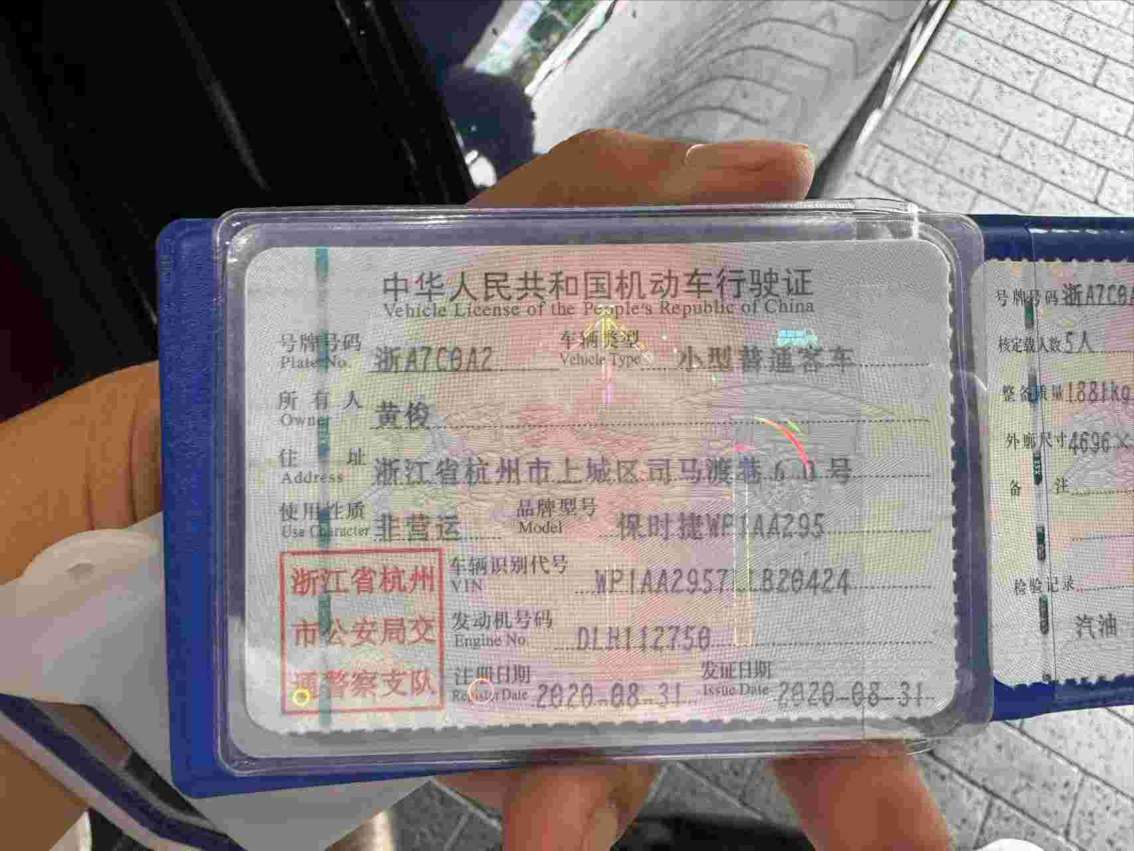 中华人民共和国机动车行驶证
Vehicle License of the People's Republic of China
号牌号码 浙A7C0A2 车辆类型 小型普通客车
Plate No. Vehicle Type
所有人 黄俊
Owner
住址 浙江省杭州市上城区司马渡巷60号
Address
使用性质 非营运 品牌型号 保时捷WP1AA295
Use Character Model
浙江省杭州
市公安局交
通警察支队
车辆识别代号
VIN
发动机号码 DLH112750
Engine No.
注册日期 2020-08-31 发证日期 2020-08-31
Register Date Issue Date
号牌号码 浙A7C0A
核定载人数 5人
整备质量 1881kg
外廓尺寸 4696×
备注
检验记录
汽油